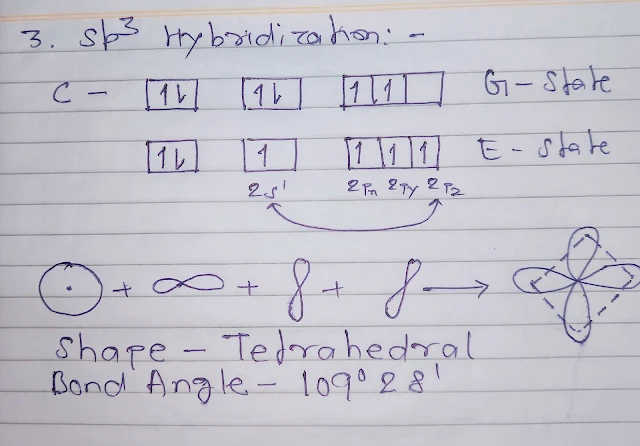 3. sp³ Hybridization: -
C - 1⇂ 1⇂ 1 1 G - State
1⇂ 1 1 1 1 E - State
2s¹ 2Px 2Py 2Pz
+ + + →
Shape - Tetrahedral
Bond Angle - 109° 28'